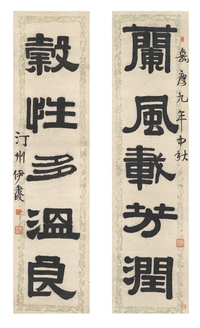 蘭風載芳潤
嘉慶九年中秋
穀性多溫良
汀州伊